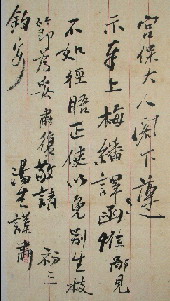 宮保大人閣下謹
示奉上梅繙譯函惟鄙見
不如徑晤正使以免別生枝
節茲安肅復敬請
鈞安
湯生謹肅
初三